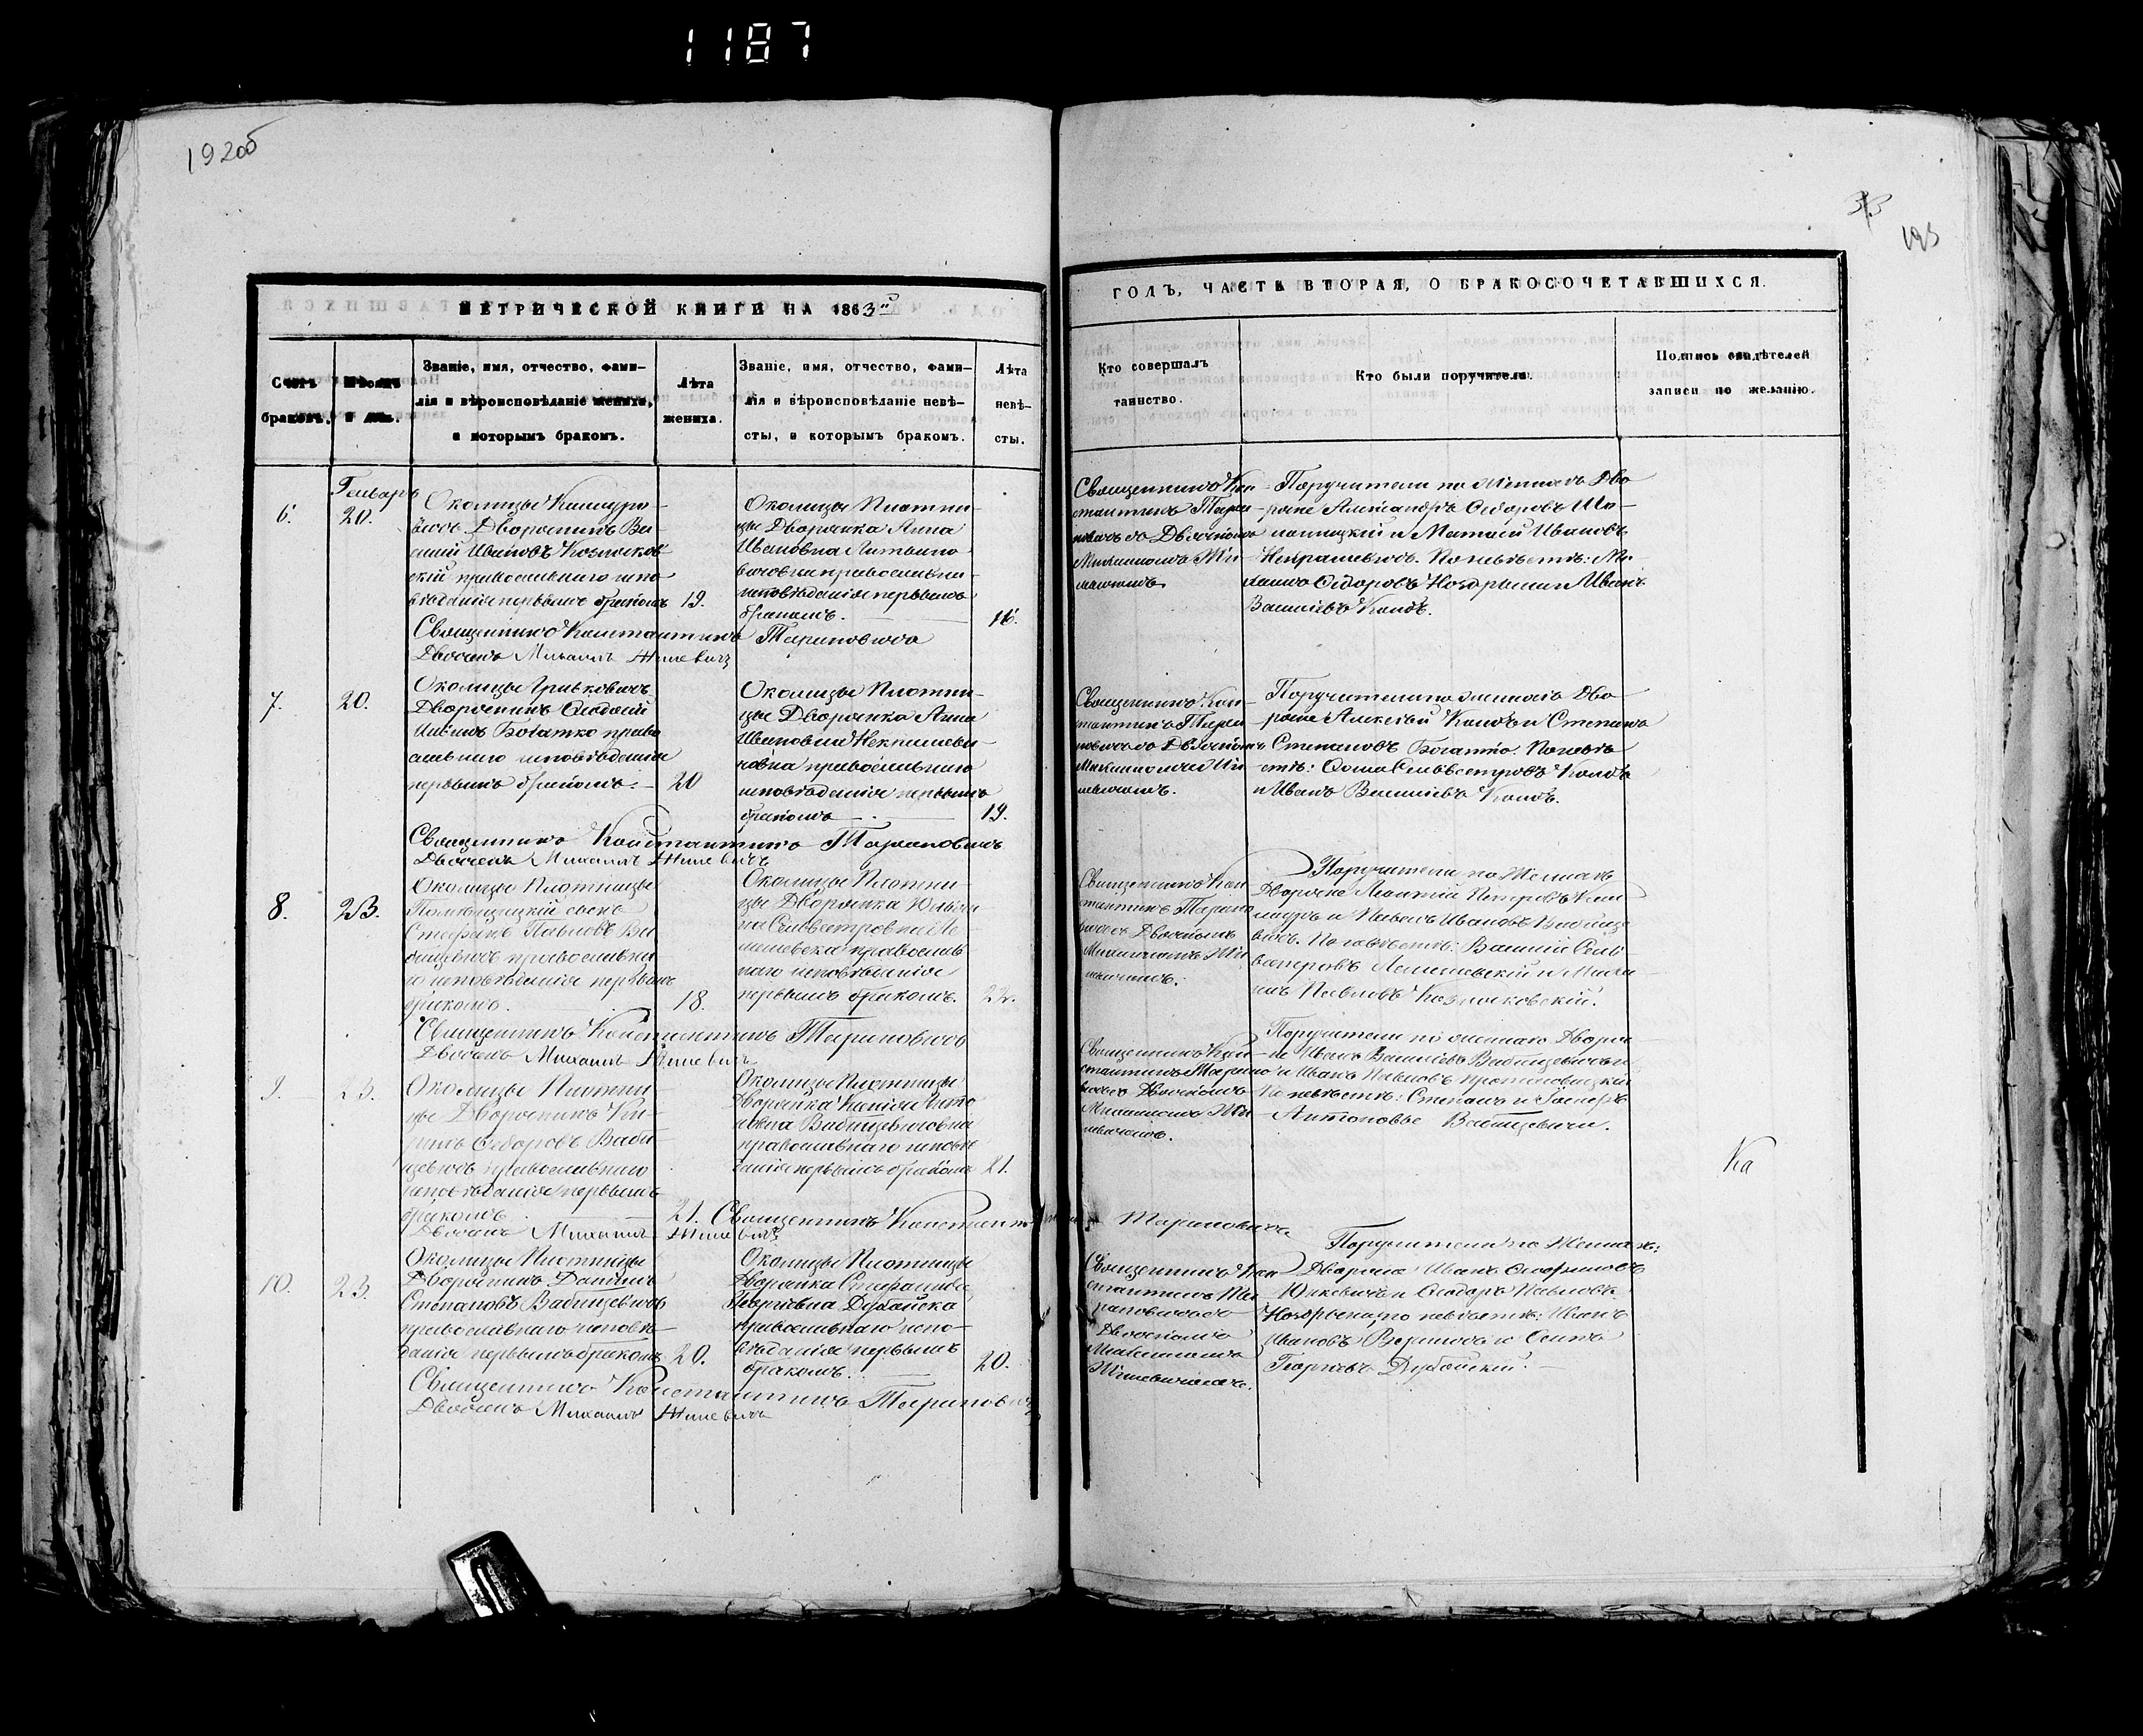 1187
192об
33
193
МЕТРИЧЕСКОЙ КНИГИ НА 1863й
ГОДЪ, ЧАСТЬ ВТОРАЯ, О БРАКОСОЧЕТАВШИХСЯ.
Счетъ
браковъ.
Мѣсяцъ
и день.
Званіе, имя, отчество, фами-
лія и вѣроисповѣданіе жениха,
и которымъ бракомъ.
Лѣта
жениха.
Званіе, имя, отчество, фами-
лія и вѣроисповѣданіе невѣ-
сты, и которымъ бракомъ.
Лѣта
невѣ-
сты.
Кто совершалъ
таинство.
Кто были поручители.
Подпись свидѣтелей
записи по желанію.
6.
Генваря
20.
Околицы
Дворянинъ Ва-
силій Ивановъ Козляков-
скій православнаго испо-
вѣданія первымъ бракомъ
19.
Околицы Плотни-
цы Дворянка Анна
Ивановна Литвино-
вичовна православна-
исповѣданія первымъ
бракомъ.
16.
Священникъ Кон-
стантинъ Тара-
новичъ съ Дьячкомъ
Михаиломъ Жи-
Поручители по женихѣ Дво-
ряне Александръ Ѳедоровъ
и Матѳей Ивановъ
По невѣстѣ: Ми-
хаилъ Ѳедоровъ Ноздрынъ и Иванъ
Василіевъ Колбъ.
Священникъ Константинъ Тарановичъ
Дьячекъ Михаилъ Жиневичъ
7.
20.
Околицы Гриьковичъ
Дворянинъ Ѳеодосій
Богатко право-
славнаго исповѣданія
первымъ бракомъ.
20
Околицы Плотни-
цы Дворянка Анна
Ивановна
човна православнаго
исповѣданія первымъ
бракомъ
19.
Священникъ Кон-
стантинъ Тара-
новичъ съ Дьячкомъ
Михаиломъ Жи-
невичомъ.
Поручители по женихѣ Дво-
ряне Алексѣй Колбъ и Степанъ
Степановъ Богатко. По невѣ-
стѣ: Ѳома Сельвестровъ Колбъ
и Иванъ Василіевъ Колбъ.
Священникъ Константинъ Тарановичъ
Дьячекъ Михаилъ Жиневичъ
8.
23.
Околицы Плотницы
сынъ
Стефанъ Павловъ Ва-
православна-
го исповѣданія первымъ
бракомъ.
18.
Околицы Плотни-
цы Дворянка Юліа-
на Сельвестровна Ле-
мешевска православ-
наго исповѣданія
первымъ бракомъ.
22.
Священникъ Кон-
стантинъ Тарано-
вичъ съ Дьячкомъ
Михаиломъ Жи-
невичомъ.
Поручители по Женихѣ
Дворяне Леонтій Петровъ
и Павелъ Ивановъ
По невѣстѣ: Василій Сель-
вестровъ Лемешевскій и Миха-
илъ Павловъ Козляковскій.
Священникъ Константинъ Тарановичъ
Дьячекъ Михаилъ Жиневичъ
9.
23.
Околицы Плотни-
цы Дворянинъ Ки-
рилъ Ѳедоровъ Ваби-
щевичъ православнаго
исповѣданія первымъ
бракомъ
21.
Околицы Плотницы
Дворянка Ксенія Анто-
новна Вабищевичовна
православнаго исповѣ-
данія первымъ бракомъ
21.
Священникъ Кон-
стантинъ Тарано-
вичъ съ Дьячкомъ
Михаиломъ Жи-
невичомъ.
Поручители по женихѣ Дворя-
не Иванъ Василіевъ Вабищевичъ
и Иванъ Павловъ Протасовицкій
По невѣстѣ: Степанъ и Іосифъ
Антоновы Вабищевичи.
Ка
Священникъ Константинъ Тарановичъ
Дьячекъ Михаилъ Жиневичъ
10.
23.
Околицы Плотницы
Дворянинъ Даніилъ
Степановъ Вабищевичъ
православнаго исповѣ-
данія первымъ бракомъ
20.
Околицы Плотницы
Дворянка Стефанида
Георгіевна Дубайска
православнаго испо-
вѣданія первымъ
бракомъ.
20.
Священникъ Кон-
стантинъ Та-
рановичъ съ
Дьячкомъ
Михаиломъ
Жиневичомъ.
Поручители по Женихѣ:
Дворяне Иванъ
Юхневичъ и Ѳеодоръ Павловъ
Ноздрынъ, по невѣстѣ: Иванъ
Ивановъ и
Георгіевъ Дубайскій.
Священникъ Константинъ Тарановичъ
Дьячекъ Михаилъ Жиневичъ